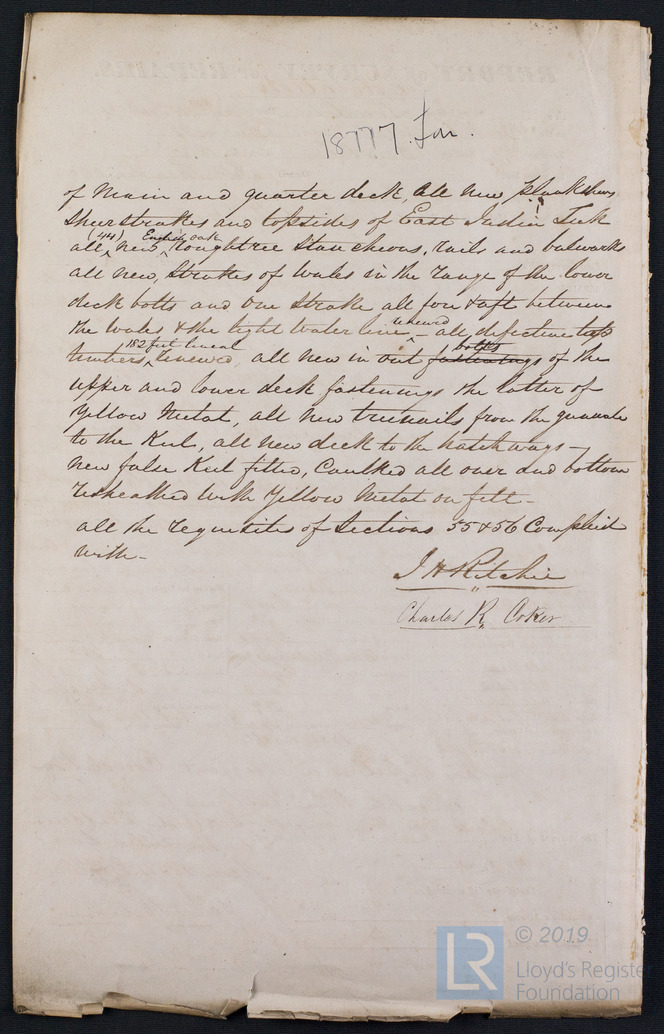 REPORT of SURVEY for REPAIRS.
18777 Ion.
of Main and quarter deck, all new plank sheers
Sheerstrakes and topsides of East India Teak
all (44) new English oak roughtree Stancheons, rails and bulwarks
all new, Strakes of Wales in the range of the lower
deck bolts and one Strake all fore & aft between
the Wales & the light Water line renewed - all defective top
timbers 182 feet lineal renewed, all new in out fastenings bolts of the
upper and lower deck fastenings the latter of
Yellow Metal, all new treenails from the gunwale
to the Keel, all new deck to the hatchways -
new false Keel fitted, Caulked all over and bottom
resheathed with Yellow Metal on felt -
all the requisites of Sections 55 & 56 Complied
with -
J H Ritchie
Charles R. Coker
LR
© 2019
Lloyd's Register
Foundation